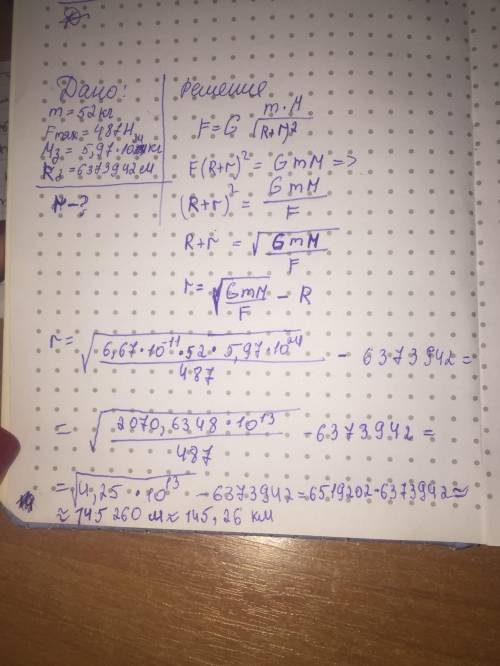 Дано:
m = 52 кг
Fmax = 487 Н
Mз = 5,97·10²⁴ кг
Rз = 6373942 м
r - ?
Решение
F = G m·M / (R+r)²
F(R+r)² = GmM =>
(R+r)² = GmM / F
R+r = √(GmM / F)
r = √(GmM / F) - R
r = √(6,67·10⁻¹¹·52·5,97·10²⁴ / 487) - 6373942 =
= √(2070,6348·10¹³ / 487) - 6373942 =
= √(4,25·10¹³) - 6373942 = 6519202-6373942 ≈
≈ 145 260 м ≈ 145,26 км